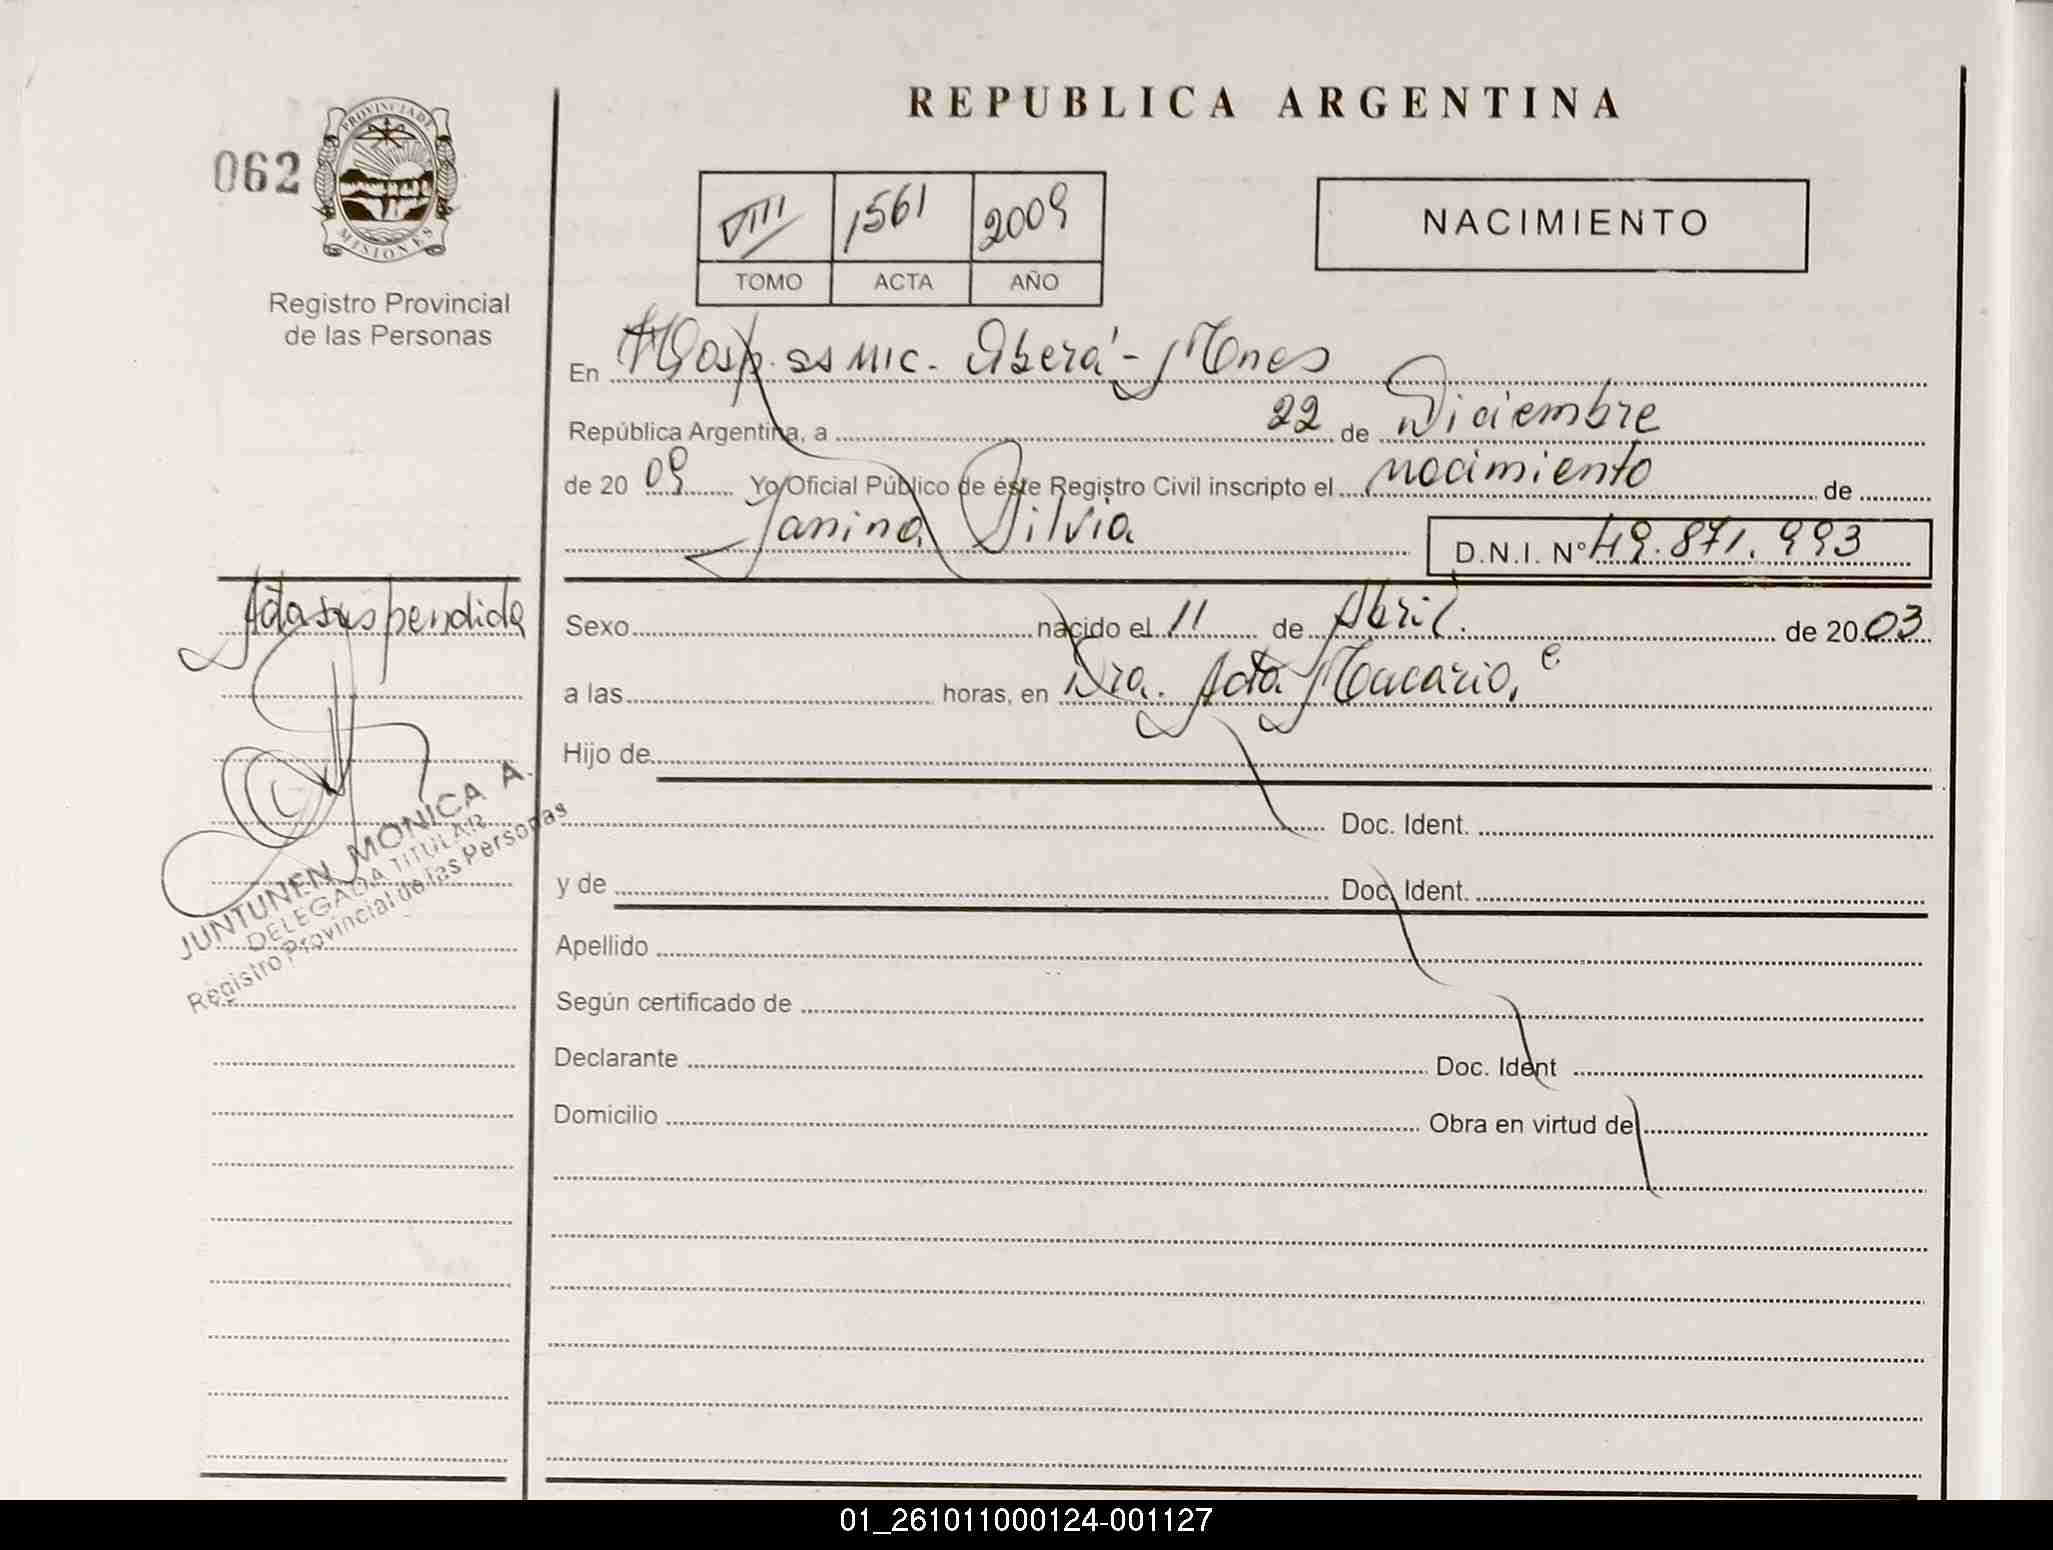 REPUBLICA ARGENTINA
062
PROVINCIA DE
MISIONES
Registro Provincial
de las Personas
VIII 1561 2009
TOMO ACTA AÑO
NACIMIENTO
En Hosp. SS MIC. Oberá - Mnes
República Argentina, a 22 de Diciembre
de 20 09 Yo Oficial Público de éste Registro Civil inscripto el nacimiento de
Janina Silvia D.N.I. Nº 49.871.993
Acta suspendida
Sexo nacido el 11 de Abril. de 20 03
a las horas, en Dra. Macario,
Hijo de
Doc. Ident.
y de Doc. Ident.
JUNTUNEN MONICA A.
DELEGADA TITULAR
Registro Provincial de las Personas
Apellido
Según certificado de
Declarante Doc. Ident
Domicilio Obra en virtud de
01_261011000124-001127